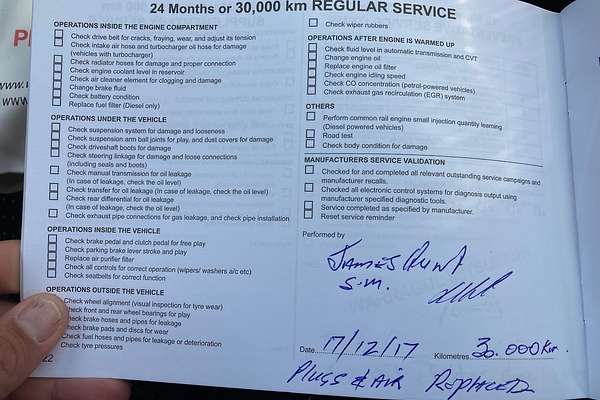 24 Months or 30,000 km REGULAR SERVICE
OPERATIONS INSIDE THE ENGINE COMPARTMENT
Check drive belt for cracks, fraying, wear, and adjust its tension
Check intake air hose and turbocharger oil hose for damage
(vehicles with turbocharger)
Check radiator hoses for damage and proper connection
Check engine coolant level in reservoir
Check air cleaner element for clogging and damage
Change brake fluid
Check battery condition
Replace fuel filter (Diesel only)
OPERATIONS UNDER THE VEHICLE
Check suspension system for damage and looseness
Check suspension arm ball joints for play, and dust covers for damage
Check driveshaft boots for damage
Check steering linkage for damage and loose connections
(including seals and boots)
Check manual transmission for oil leakage
(In case of leakage, check the oil level)
Check transfer for oil leakage (In case of leakage, check the oil level)
Check rear differential for oil leakage
(In case of leakage, check the oil level)
Check exhaust pipe connections for gas leakage, and check pipe installation
OPERATIONS INSIDE THE VEHICLE
Check brake pedal and clutch pedal for free play
Check parking brake lever stroke and play
Replace air purifier filter
Check all controls for correct operation (wipers/ washers a/c etc)
Check seatbelts for correct function
OPERATIONS OUTSIDE THE VEHICLE
Check wheel alignment (visual inspection for tyre wear)
Check front and rear wheel bearings for play
Check brake hoses and pipes for leakage
Check brake pads and discs for wear
Check fuel hoses and pipes for leakage or deterioration
Check tyre pressures
22
Check wiper rubbers
OPERATIONS AFTER ENGINE IS WARMED UP
Check fluid level in automatic transmission and CVT
Change engine oil
Replace engine oil filter
Check engine idling speed
Check CO concentration (petrol-powered vehicles)
Check exhaust gas recirculation (EGR) system
OTHERS
Perform common rail engine small injection quantity learning
(Diesel powered vehicles)
Road test
Check body condition for damage
MANUFACTURERS SERVICE VALIDATION
Checked for and completed all relevant outstanding service campaigns and
manufacturer recalls.
Checked all electronic control systems for diagnosis output using
manufacturer specified diagnostic tools.
Service completed as specified by manufacturer.
Reset service reminder
Performed by
JAMES
S.M.
Date 17/12/17 Kilometres 30.000Km.
PLUGS & AIR REPLACED